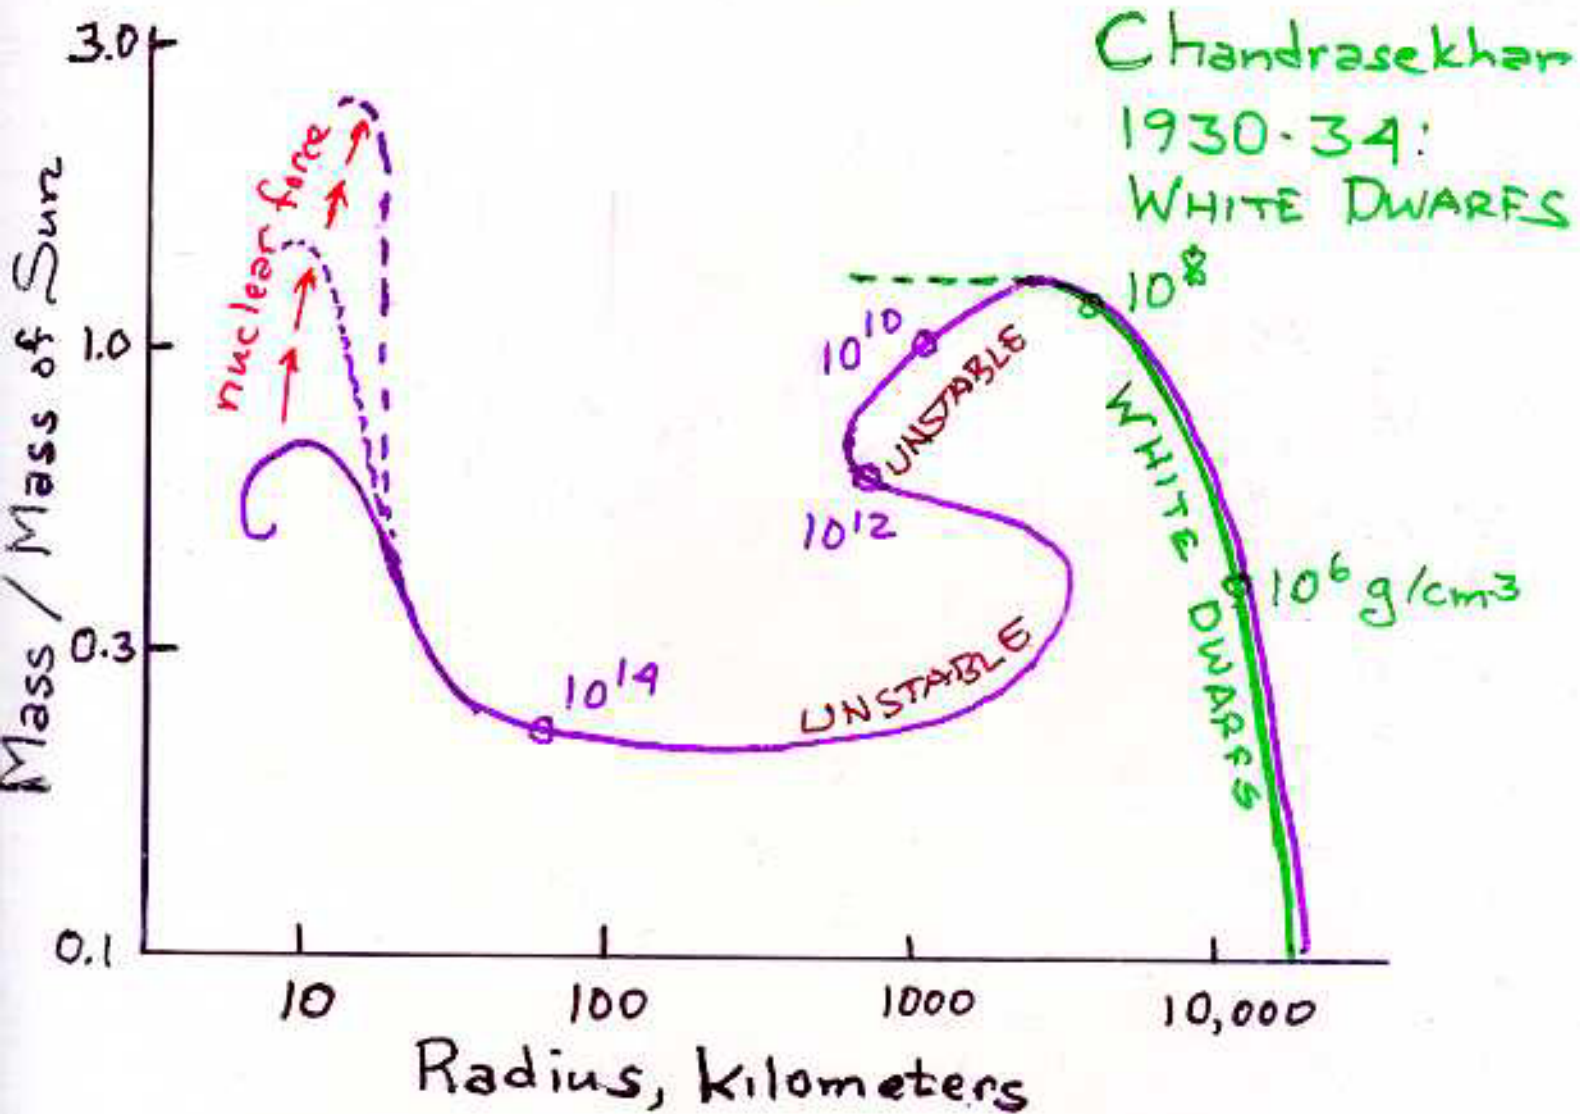 Chandrasekhar
1930-34:
WHITE DWARFS
3.0
1.0
0.3
0.1
Mass / Mass of Sun
nuclear force
10^8
10^10
UNSTABLE
10^12
WHITE DWARFS
10^6 g/cm^3
10^14
UNSTABLE
10
100
1000
10,000
Radius, kilometers